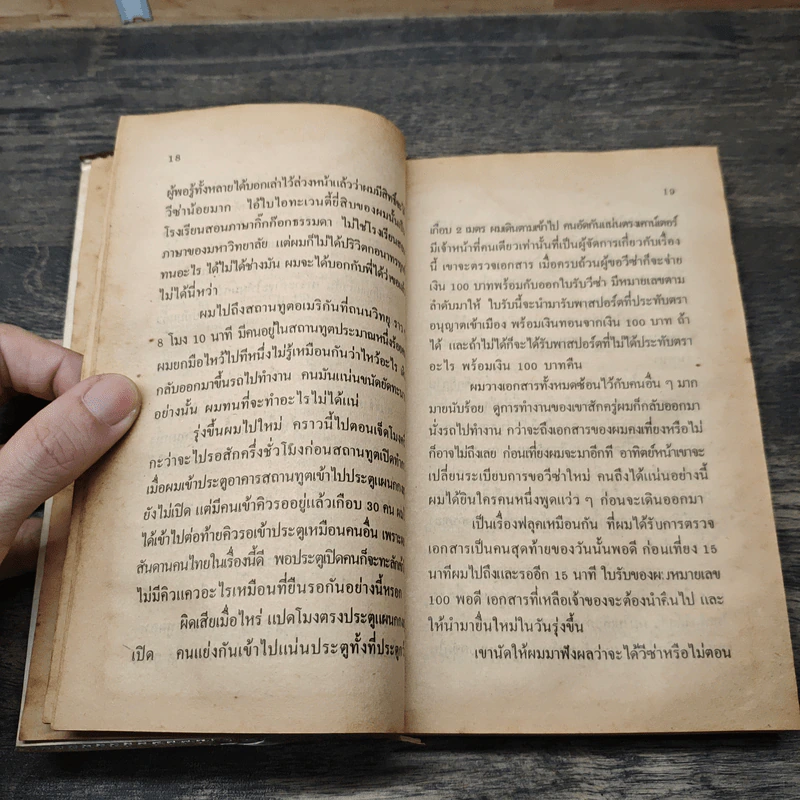 18
ผู้พอรู้ทั้งหลายได้บอกเล่าไว้ล่วงหน้าแล้วว่าผมมีสิทธิ์จะ
วีซ่าน้อยมาก ไอ้ใบไอทะเวนตี้ยี่สิบของผมนั้น
โรงเรียนสอนภาษากิ๊กก๊อกธรรมดา ไม่ใช่โรงเรียน
ภาษาของมหาวิทยาลัย แต่ผมก็ไม่ได้ปริวิตกอนาทร
ทนอะไร ได้ไม่ได้ช่างมัน ผมจะได้บอกกับพี่ได้ว่า
ไม่ได้นี่หว่า
ผมไปถึงสถานทูตอเมริกันที่ถนนวิทยุ ราว
8 โมง 10 นาที มีคนอยู่ในสถานทูตประมาณหนึ่งร้อย
ผมยกมือไหว้ไปทีหนึ่งไม่รู้เหมือนกันว่าไหว้อะไร
กลับออกมาขึ้นรถไปทำงาน คนมันแน่นขนัดยัด
อย่างนั้น ผมทนที่จะทำอะไรไม่ได้แน่
รุ่งขึ้นผมไปใหม่ คราวนี้ไปตอนเจ็ดโมง
กะว่าจะไปรอสักครึ่งชั่วโมงก่อนสถานทูตเปิด
เมื่อผมเข้าประตูอาคารสถานทูตเข้าไปประตูแผนก
ยังไม่เปิด แต่มีคนเข้าคิวรออยู่แล้วเกือบ 30 คน ผม
ได้เข้าไปต่อท้ายคิวรอเข้าประตูเหมือนคนอื่น เพราะ
สันดานคนไทยในเรื่องนี้ดี พอประตูเปิดคนก็จะทะลัก
ไม่มีคิวแควอะไรเหมือนที่ยืนรอกันอย่างนี้หรอก
ผิดเสียเมื่อไหร่ แปดโมงตรงประตูแผนก
เปิด คนแย่งกันเข้าไปแน่นประตูทั้งที่ประตู
19
เกือบ 2 เมตร ผมเดินตามเข้าไป คนอัดกันแน่นตรงเคาน์เตอร์
มีเจ้าหน้าที่คนเดียวเท่านั้นที่เป็นผู้จัดการเกี่ยวกับเรื่อง
นี้ เขาจะตรวจเอกสาร เมื่อครบถ้วนผู้ขอวีซ่าก็จะจ่าย
เงิน 100 บาทพร้อมกับออกใบรับวีซ่า มีหมายเลขตาม
ลำดับมาให้ ใบรับนี้จะนำมารับพาสปอร์ตที่ประทับตรา
อนุญาตเข้าเมือง พร้อมเงินทอนจากเงิน 100 บาท ถ้า
ได้ และถ้าไม่ได้ก็จะได้รับพาสปอร์ตที่ไม่ได้ประทับตรา
อะไร พร้อมเงิน 100 บาทคืน
ผมวางเอกสารทั้งหมดซ้อนไว้กับคนอื่น ๆ มาก
มายนับร้อย ดูการทำงานของเขาสักครู่ผมก็กลับออกมา
นั่งรถไปทำงาน กว่าจะถึงเอกสารของผมคงเที่ยงหรือไม่
ก็อาจไม่ถึงเลย ก่อนเที่ยงผมจะมาอีกที อาทิตย์หน้าเขาจะ
เปลี่ยนระเบียบการขอวีซ่าใหม่ คนถึงได้แน่นอย่างนี้
ผมได้ยินใครคนหนึ่งพูดแว่ว ๆ ก่อนจะเดินออกมา
เป็นเรื่องฟลุคเหมือนกัน ที่ผมได้รับการตรวจ
เอกสารเป็นคนสุดท้ายของวันนั้นพอดี ก่อนเที่ยง 15
นาทีผมไปถึงและรออีก 15 นาที ใบรับของผมหมายเลข
100 พอดี เอกสารที่เหลือเจ้าของจะต้องนำคืนไป และ
ให้นำมายื่นใหม่ในวันรุ่งขึ้น
เขานัดให้ผมมาฟังผลว่าจะได้วีซ่าหรือไม่ตอน